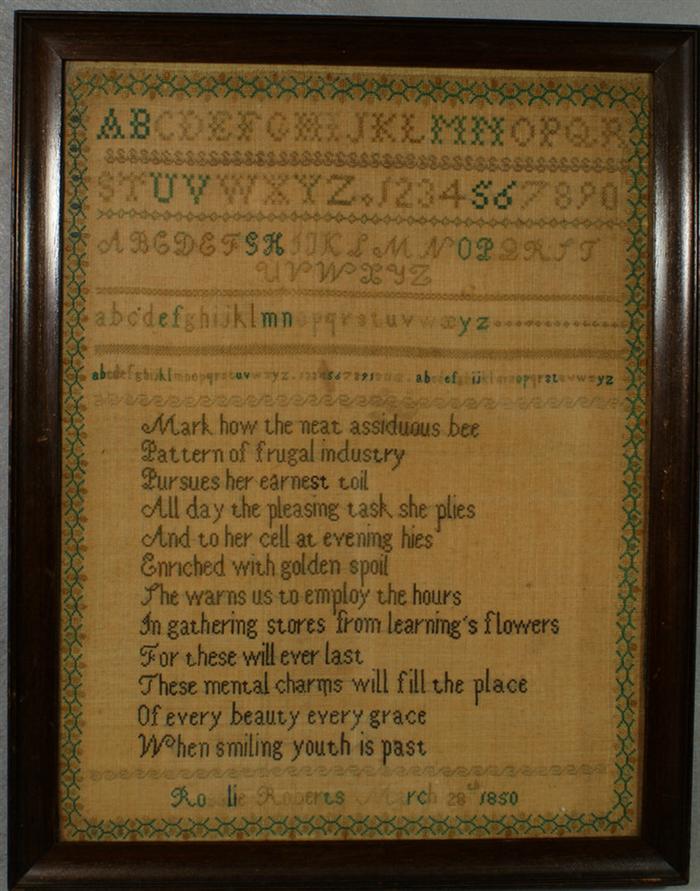 ABCDEFGHIJKLMNOPQR
STUVWXYZ.1234567890
ABCDEFGHIJKLMNOPQRST
UVWXYZ
abcdefghijklmnopqrstuvwxyz
abcdefghijklmnopqrstuvwxyz
Mark how the neat assiduous bee
Pattern of frugal industry
Pursues her earnest toil
All day the pleasing task she plies
And to her cell at evening hies
Enriched with golden spoil
She warns us to employ the hours
In gathering stores from learning's flowers
For these will ever last
These mental charms will fill the place
Of every beauty every grace
When smiling youth is past
Roberts March 28th 1850